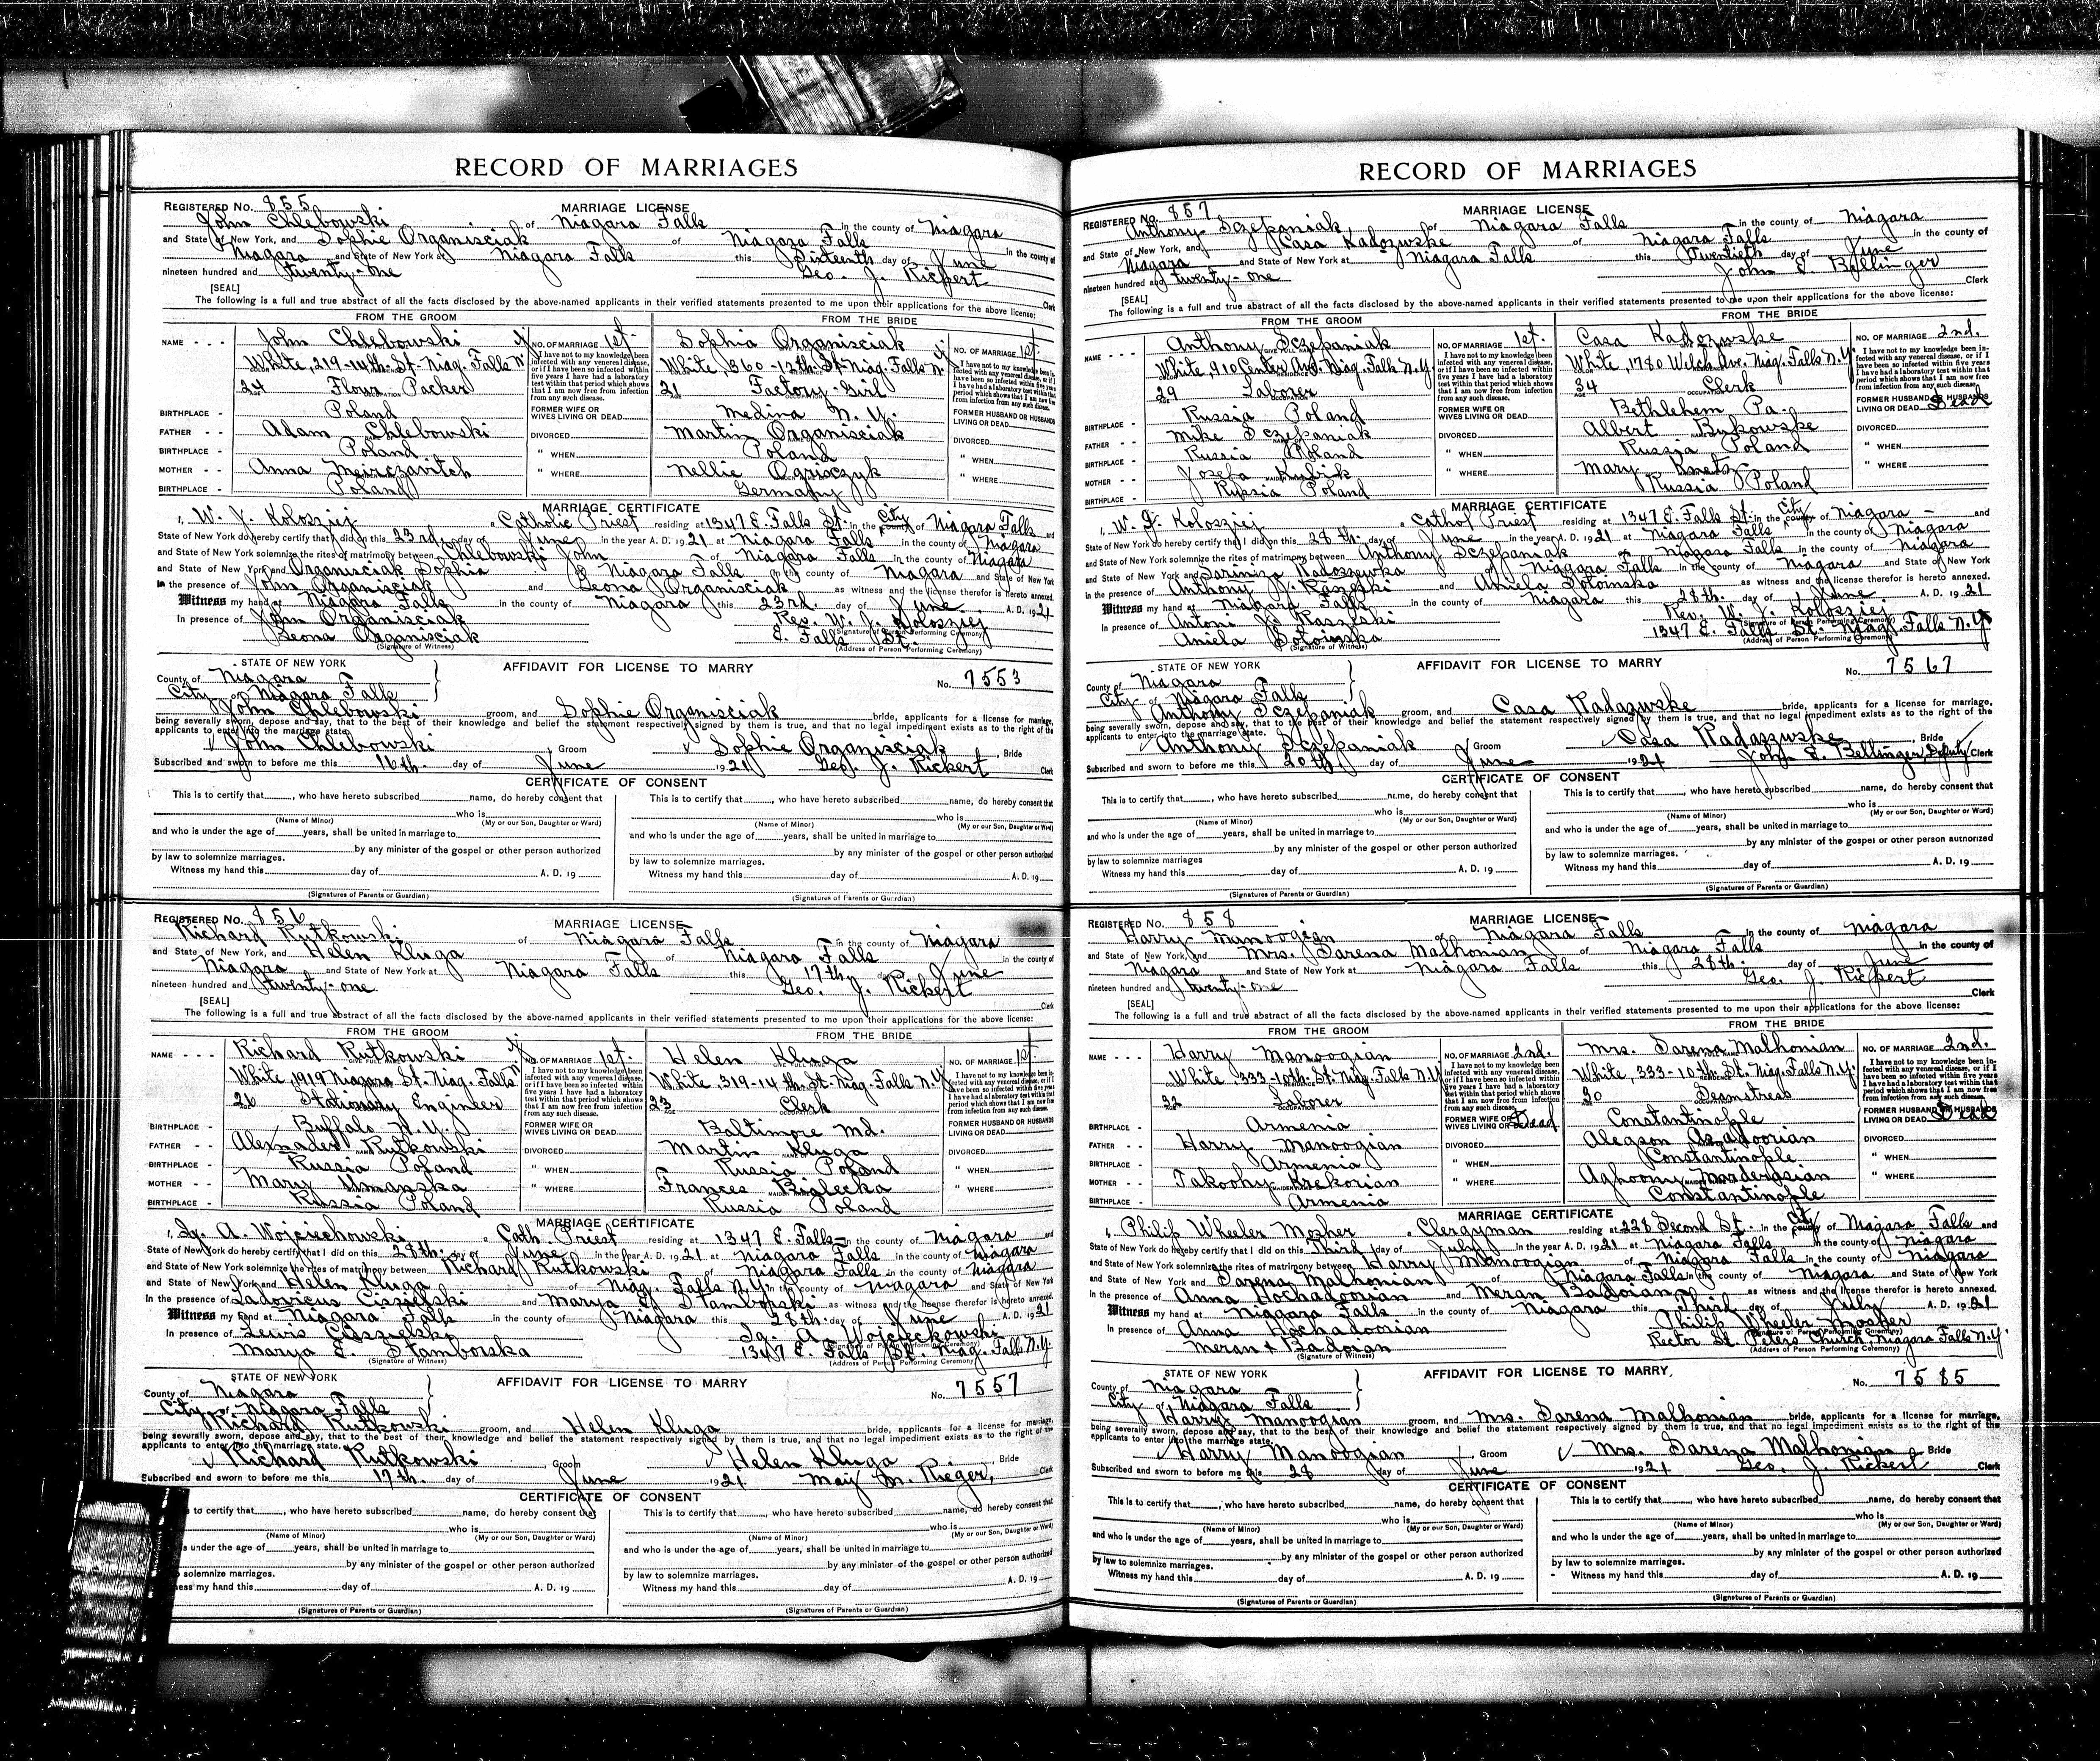 RECORD OF MARRIAGES
REGISTERED No. 855 MARRIAGE LICENSE
John Chlebowski of Niagara Falls in the county of Niagara
and State of New York, and Sophie Organisciak of Niagara Falls in the county of
Niagara and State of New York at Niagara Falls this Sixteenth day of June
nineteen hundred and twenty-one Geo. J. Rickert
[SEAL] Clerk
The following is a full and true abstract of all the facts disclosed by the above-named applicants in their verified statements presented to me upon their applications for the above license:
FROM THE GROOM FROM THE BRIDE
NAME John Chlebowski NO. OF MARRIAGE 1st. Sophia Organisciak NO. OF MARRIAGE 1st.
White, 219-14th. St. Niag. Falls N.Y. White, 360-12th. St. Niag. Falls N.Y.
I have not to my knowledge been infected with any venereal disease, or if I have been so infected within five years I have had a laboratory test within that period which shows that I am now free from infection from any such disease.
24 Flour Packer 21 Factory Girl
BIRTHPLACE Poland FORMER WIFE OR WIVES LIVING OR DEAD Medina N. Y. FORMER HUSBAND OR HUSBANDS LIVING OR DEAD
FATHER Adam Chlebowski DIVORCED Martin Organisciak DIVORCED
BIRTHPLACE Poland " WHEN Poland " WHEN
MOTHER Anna Meirczavitch " WHERE Nellie Ogrisczyk " WHERE
BIRTHPLACE Poland Germany
MARRIAGE CERTIFICATE
I, W. J. Kolosziej a Catholic Priest residing at 1347 E. Falls St. in the City county of Niagara Falls and
State of New York do hereby certify that I did on this 23rd. day of June in the year A. D. 1921 at Niagara Falls in the county of Niagara
and State of New York solemnize the rites of matrimony between Chlebowski John of Niagara Falls in the county of Niagara
and State of New York and Organisciak Sophia of Niagara Falls in the county of Niagara and State of New York
in the presence of John Organisciak and Leona Organisciak as witness and the license therefor is hereto annexed.
Witness my hand at Niagara Falls in the county of Niagara this 23rd. day of June A. D. 1921
In presence of John Organisciak Rev. W. J. Kolosziej
(Signature of Person Performing Ceremony)
Leona Organisciak E. Falls St.
(Signature of Witness) (Address of Person Performing Ceremony)
STATE OF NEW YORK AFFIDAVIT FOR LICENSE TO MARRY No. 7553
County of Niagara
City of Niagara Falls
John Chlebowski groom, and Sophie Organisciak bride, applicants for a license for marriage,
being severally sworn, depose and say, that to the best of their knowledge and belief the statement respectively signed by them is true, and that no legal impediment exists as to the right of the
applicants to enter into the marriage state.
John Chlebowski Groom Sophie Organisciak Bride
Subscribed and sworn to before me this 16th. day of June 1921 Geo. J. Rickert Clerk
CERTIFICATE OF CONSENT
This is to certify that, who have hereto subscribed name, do hereby consent that This is to certify that, who have hereto subscribed name, do hereby consent that
who is who is
(Name of Minor) (My or our Son, Daughter or Ward) (Name of Minor) (My or our Son, Daughter or Ward)
and who is under the age of years, shall be united in marriage to and who is under the age of years, shall be united in marriage to
by any minister of the gospel or other person authorized by any minister of the gospel or other person authorized
by law to solemnize marriages. by law to solemnize marriages.
Witness my hand this day of A. D. 19 Witness my hand this day of A. D. 19
(Signatures of Parents or Guardian) (Signatures of Parents or Guardian)
REGISTERED No. 856 MARRIAGE LICENSE
Richard Rutkowski of Niagara Falls in the county of Niagara
and State of New York, and Helen Kluga of Niagara Falls in the county of
Niagara and State of New York at Niagara Falls this 17th day June
nineteen hundred and twenty-one Geo. J. Rickert
[SEAL] Clerk
The following is a full and true abstract of all the facts disclosed by the above-named applicants in their verified statements presented to me upon their applications for the above license:
FROM THE GROOM FROM THE BRIDE
NAME Richard Rutkowski NO. OF MARRIAGE 1st. Helen Kluga NO. OF MARRIAGE 1st.
White, 1919 Niagara St. Niag. Falls N.Y. White, 319-14th. St. Niag. Falls N.Y.
I have not to my knowledge been infected with any venereal disease, or if I have been so infected within five years I have had a laboratory test within that period which shows that I am now free from infection from any such disease.
26 Stationary Engineer 23 Clerk
BIRTHPLACE Buffalo N. Y. FORMER WIFE OR WIVES LIVING OR DEAD Baltimore Md. FORMER HUSBAND OR HUSBANDS LIVING OR DEAD
FATHER Alexnader Rutkowski DIVORCED Martin Kluga DIVORCED
BIRTHPLACE Russia Poland " WHEN Russia Poland " WHEN
MOTHER Mary Umanska " WHERE Frances Bialecka " WHERE
BIRTHPLACE Russia Poland Russia Poland
MARRIAGE CERTIFICATE
I, Ig. A. Wojciechowski a Cath. Priest residing at 1347 E. Falls in the county of Niagara and
State of New York do hereby certify that I did on this 28th. day of June in the year A. D. 1921 at Niagara Falls in the county of Niagara
and State of New York solemnize the rites of matrimony between Richard Rutkowski of Niagara Falls in the county of Niagara
and State of New York and Helen Kluga of Niag. Falls N.Y. in the county of Niagara and State of New York
in the presence of Ladovicus Ciszelski and Marya E. Stamborski as witness and the license therefor is hereto annexed.
Witness my hand at Niagara Falls in the county of Niagara this 28th. day of June A. D. 1921
In presence of Lewis Ig. A. Wojcieckowski
(Signature of Person Performing Ceremony)
Marya E. Stamborska 1347 E. Falls St. Niag. Falls N.Y.
(Signature of Witness) (Address of Person Performing Ceremony)
STATE OF NEW YORK AFFIDAVIT FOR LICENSE TO MARRY No. 7557
County of Niagara
City of Niagara Falls
Richard Rutkowski groom, and Helen Kluga bride, applicants for a license for marriage,
being severally sworn, depose and say, that to the best of their knowledge and belief the statement respectively signed by them is true, and that no legal impediment exists as to the right of the
applicants to enter into the marriage state.
Richard Rutkowski Groom Helen Kluga Bride
Subscribed and sworn to before me this 17th. day of June 1921 May M. Rieger, Clerk
CERTIFICATE OF CONSENT
to certify that, who have hereto subscribed name, do hereby consent that This is to certify that, who have hereto subscribed name, do hereby consent that
who is who is
(Name of Minor) (My or our Son, Daughter or Ward) (Name of Minor) (My or our Son, Daughter or Ward)
s under the age of years, shall be united in marriage to and who is under the age of years, shall be united in marriage to
by any minister of the gospel or other person authorized by any minister of the gospel or other person authorized
solemnize marriages. by law to solemnize marriages.
ness my hand this day of A. D. 19 Witness my hand this day of A. D. 19
(Signatures of Parents or Guardian) (Signatures of Parents or Guardian)
RECORD OF MARRIAGES
REGISTERED No. 857 MARRIAGE LICENSE
Anthony Sczepaniak of Niagara Falls in the county of Niagara
and State of New York, and Casa Kadozwske of Niagara Falls in the county of
Niagara and State of New York at Niagara Falls this Twentieth day of June
nineteen hundred and twenty-one John E. Bellinger
[SEAL] Clerk
The following is a full and true abstract of all the facts disclosed by the above-named applicants in their verified statements presented to me upon their applications for the above license:
FROM THE GROOM FROM THE BRIDE
NAME Anthony Sczepaniak NO. OF MARRIAGE 1st. Casa Kadozwske NO. OF MARRIAGE 2nd.
White, 910 Center Ave. Niag. Falls N.Y. White, 1780 Welch Ave. Niag. Falls N.Y.
I have not to my knowledge been infected with any venereal disease, or if I have been so infected within five years I have had a laboratory test within that period which shows that I am now free from infection from any such disease.
29 Laborer 34 Clerk
BIRTHPLACE Russia Poland FORMER WIFE OR WIVES LIVING OR DEAD Bethlehem Pa. FORMER HUSBAND OR HUSBANDS LIVING OR DEAD Dead
FATHER Mike Sczepaniak DIVORCED Albert Bykowske DIVORCED
BIRTHPLACE Russia Poland " WHEN Russia Poland " WHEN
MOTHER Josefa Kubik " WHERE Mary Knetz " WHERE
BIRTHPLACE Russia Poland Russia Poland
MARRIAGE CERTIFICATE
I, W. J. Kolosziej a Cathol Priest residing at 1347 E. Falls St. in the City county of Niagara and
State of New York do hereby certify that I did on this 28th. day of June in the year A. D. 1921 at Niagara Falls in the county of Niagara
and State of New York solemnize the rites of matrimony between Anthony Sczepaniak of Niagara Falls in the county of Niagara
and State of New York and Radoszewka of Niagara Falls in the county of Niagara and State of New York
in the presence of Anthony J. Raszeski and Aniela as witness and the license therefor is hereto annexed.
Witness my hand at Niagara Falls in the county of Niagara this 28th. day of June A. D. 1921
In presence of Antoni J. Raszlski Rev. W. J. Kolosziej
(Signature of Person Performing Ceremony)
Aniela 1347 E. Falls St. Niag. Falls N.Y.
(Signature of Witness) (Address of Person Performing Ceremony)
STATE OF NEW YORK AFFIDAVIT FOR LICENSE TO MARRY No. 7567
County of Niagara
City of Niagara Falls
Anthony Sczepaniak groom, and Casa Radazwske bride, applicants for a license for marriage,
being severally sworn, depose and say, that to the best of their knowledge and belief the statement respectively signed by them is true, and that no legal impediment exists as to the right of the
applicants to enter into the marriage state.
Anthony Sczepaniak Groom Casa Radaszwske Bride
Subscribed and sworn to before me this 20th day of June 1921 John E. Bellinger, Deputy Clerk
CERTIFICATE OF CONSENT
This is to certify that, who have hereto subscribed name, do hereby consent that This is to certify that, who have hereto subscribed name, do hereby consent that
who is who is
(Name of Minor) (My or our Son, Daughter or Ward) (Name of Minor) (My or our Son, Daughter or Ward)
and who is under the age of years, shall be united in marriage to and who is under the age of years, shall be united in marriage to
by any minister of the gospel or other person authorized by any minister of the gospel or other person authorized
by law to solemnize marriages by law to solemnize marriages.
Witness my hand this day of A. D. 19 Witness my hand this day of A. D. 19
(Signatures of Parents or Guardian) (Signatures of Parents or Guardian)
REGISTERED No. 858 MARRIAGE LICENSE
Harry Manoogian of Niagara Falls in the county of Niagara
and State of New York, and Mrs. Sarena Malhonian of Niagara Falls in the county of
Niagara and State of New York at Niagara Falls this 28th. day of June
nineteen hundred and twenty-one Geo. J. Rickert
[SEAL] Clerk
The following is a full and true abstract of all the facts disclosed by the above-named applicants in their verified statements presented to me upon their applications for the above license:
FROM THE GROOM FROM THE BRIDE
NAME Harry Manoogian NO. OF MARRIAGE 2nd. Mrs. Sarena Malhonian NO. OF MARRIAGE 2nd.
White, 333-10th St. Niag. Falls N.Y. White, 333-10th. St. Niag. Falls N.Y.
I have not to my knowledge been infected with any venereal disease, or if I have been so infected within five years I have had a laboratory test within that period which shows that I am now free from infection from any such disease.
32 Laborer 30 Seamstress
BIRTHPLACE Armenia FORMER WIFE OR WIVES LIVING OR DEAD Dead Constantinople FORMER HUSBAND OR HUSBANDS LIVING OR DEAD Dead
FATHER Harry Manoogian DIVORCED Alegson Asadoorian DIVORCED
BIRTHPLACE Armenia " WHEN Constantinople " WHEN
MOTHER Takoohy Krekorian " WHERE Aghoony Maderosian " WHERE
BIRTHPLACE Armenia Constantinople
MARRIAGE CERTIFICATE
I, Philip Wheeler Mosher a Clergyman residing at 228 Second St. in the City county of Niagara Falls and
State of New York do hereby certify that I did on this Third day of July in the year A. D. 1921 at Niagara Falls in the county of Niagara
and State of New York solemnize the rites of matrimony between Harry Manoogian of Niagara Falls in the county of Niagara
and State of New York and Sarena Malhonian of Niagara Falls in the county of Niagara and State of New York
in the presence of Anna Hochadoorian and Meran Badoian as witness and the license therefor is hereto annexed.
Witness my hand at Niagara Falls in the county of Niagara this Third day of July A. D. 1921
In presence of Anna Hochadoorian Philip Wheeler Mosher
(Signature of Person Performing Ceremony)
Meran x Badoian Rector St. Peters Church, Niagara Falls N.Y.
(Signature of Witness) (Address of Person Performing Ceremony)
STATE OF NEW YORK AFFIDAVIT FOR LICENSE TO MARRY, No. 7585
County of Niagara
City of Niagara Falls
Harry Manoogian groom, and Mrs. Sarena Malhonian bride, applicants for a license for marriage,
being severally sworn, depose and say, that to the best of their knowledge and belief the statement respectively signed by them is true, and that no legal impediment exists as to the right of the
applicants to enter into the marriage state.
Harry Manoogian Groom Mrs. Sarena Malhonian Bride
Subscribed and sworn to before me this 28 day of June 1921 Geo. J. Rickert Clerk
CERTIFICATE OF CONSENT
This is to certify that, who have hereto subscribed name, do hereby consent that This is to certify that, who have hereto subscribed name, do hereby consent that
who is who is
(Name of Minor) (My or our Son, Daughter or Ward) (Name of Minor) (My or our Son, Daughter or Ward)
and who is under the age of years, shall be united in marriage to and who is under the age of years, shall be united in marriage to
by any minister of the gospel or other person authorized by any minister of the gospel or other person authorized
by law to solemnize marriages. by law to solemnize marriages.
Witness my hand this day of A. D. 19 Witness my hand this day of A. D. 19
(Signatures of Parents or Guardian) (Signatures of Parents or Guardian)